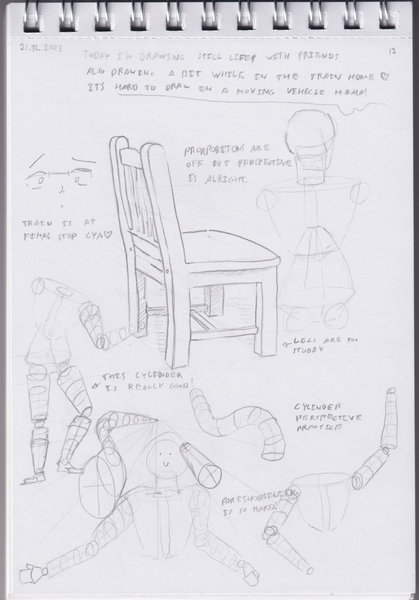 21.12.2023
13
TODAY I'M DRAWING STILL LIFES WITH FRIENDS
ALSO DRAWING A BIT WHILE IN THE TRAIN HOME ♡
ITS HARD TO DRAW ON A MOVING VEHICLE MAMA!
PROPORTIONS ARE
OFF BUT PERSPECTIVE
IS ALRIGHT.
TRAIN IS AT
FINAL STOP CYA♡
LEGS ARE TOO
STUBBY
THIS CYLINDER
IS REALLY GOOD!
CYLINDER
PERSPECTIVE
PRACTICE
FORESHORTENING
IS SO HARD!